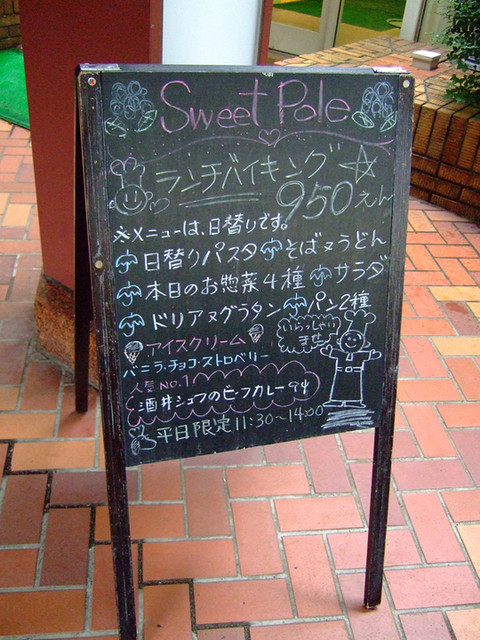 Sweet Pole
ランチバイキング
950えん
※メニューは、日替りです。
日替りパスタ そばヌうどん
本日のお惣菜4種 サラダ
ドリアヌグラタン パン2種
アイスクリーム
バニラ・チョコ・ストロベリー
いらっしゃい
ませ
人気NO.1
酒井シェフのビーフカレー
平日限定11:30〜14:00